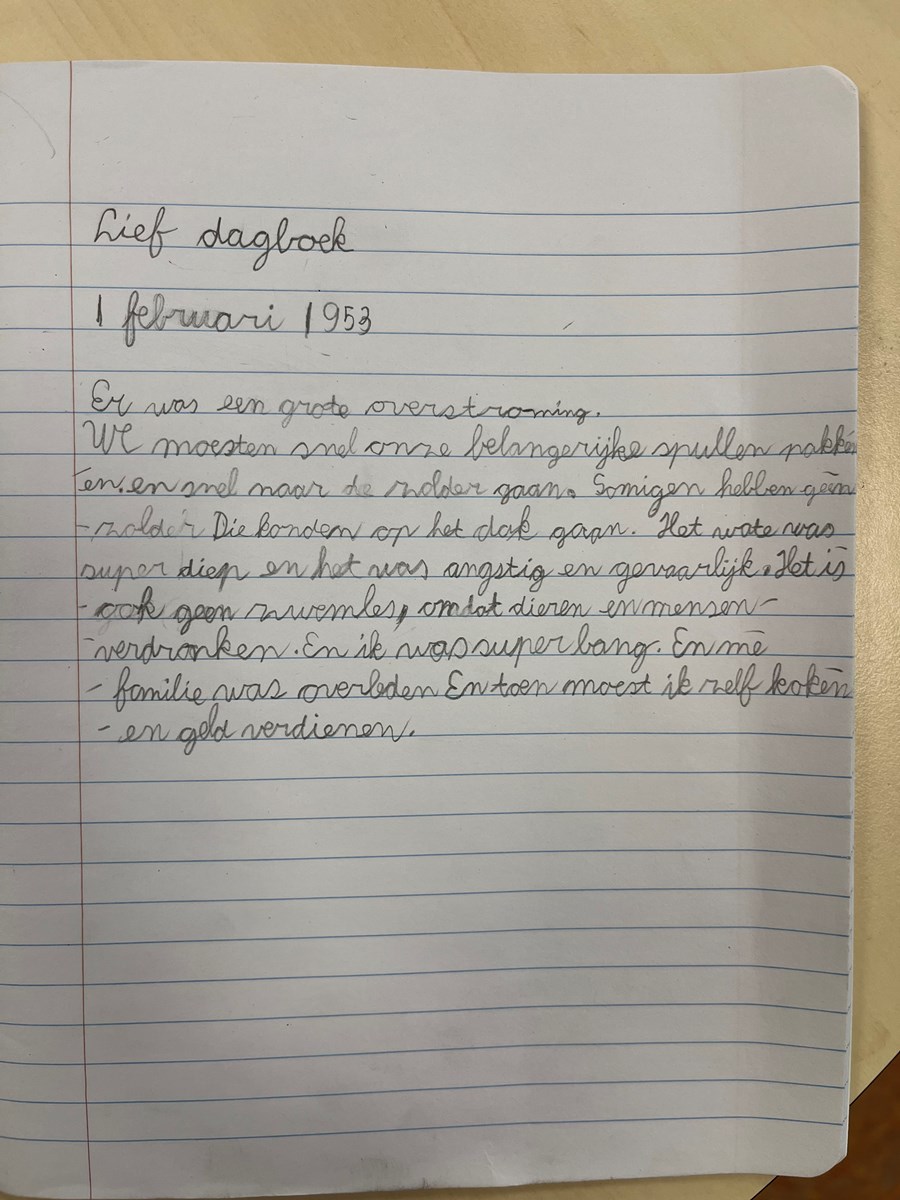 Lief dagboek
1 februari 1953
Er was een grote overstroming.
We moesten snel onze belangerijke spullen pakk
en. en snel naar de zolder gaan. Somigen hebben geen
- zolder Die konden op het dak gaan. Het wate was
super diep en het was angstig en gevaarlijk. Het is
- ook geen zwemles, omdat dieren en mensen -
- verdronken. En ik was super bang. En me
- familie was overleden En toen moest ik zelf koken
- en geld verdienen.